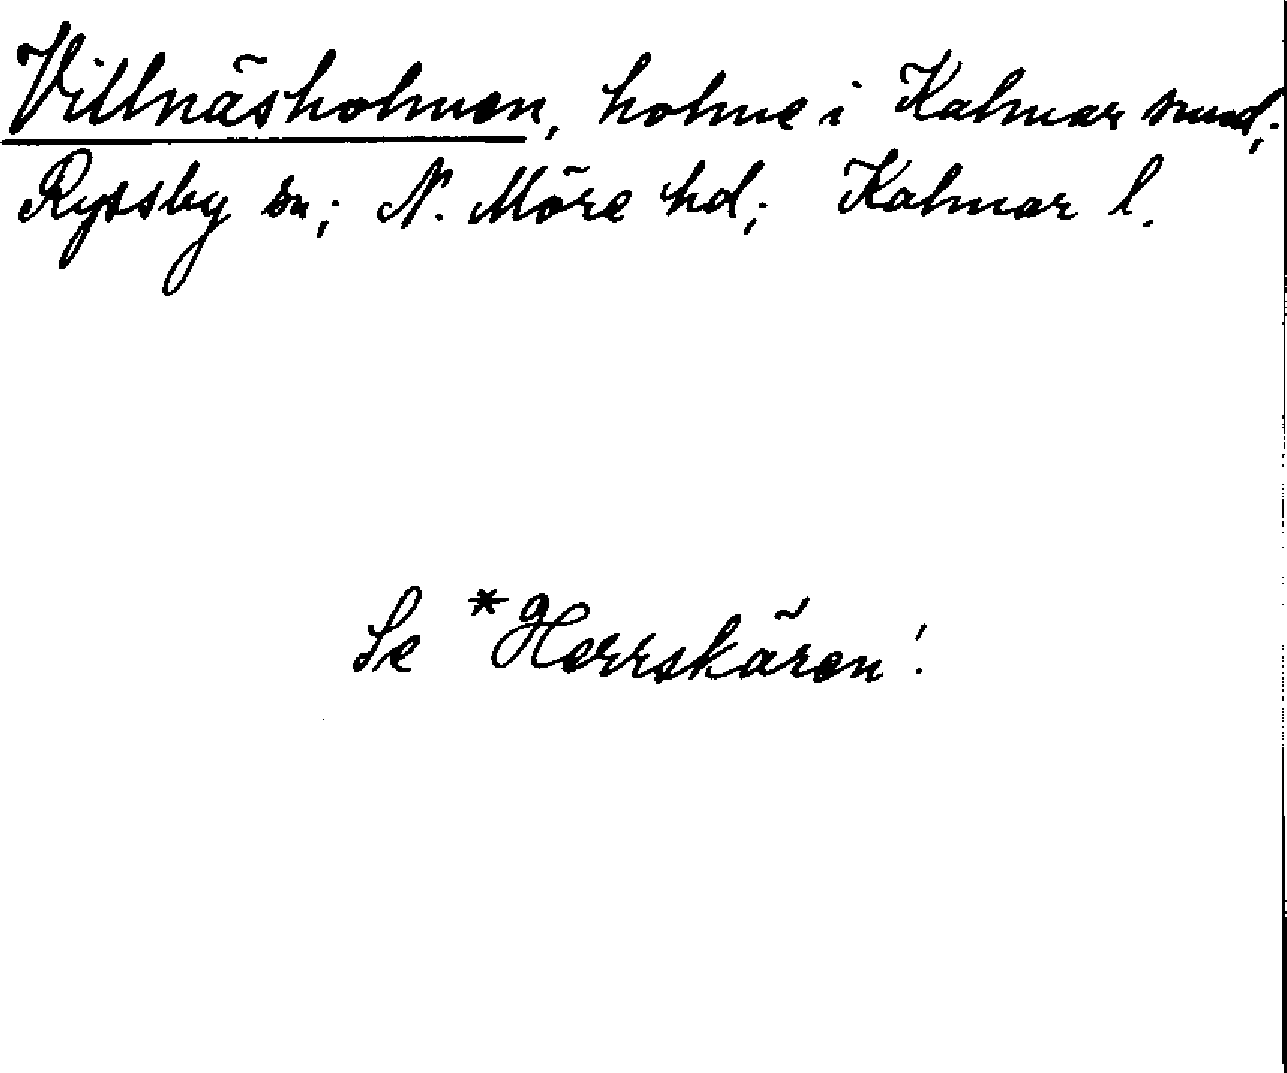 Villnäsholmen, holme i Kalmar sund;
Ryssby sn; N. Möre hd; Kalmar l.
Se *Herrskären!